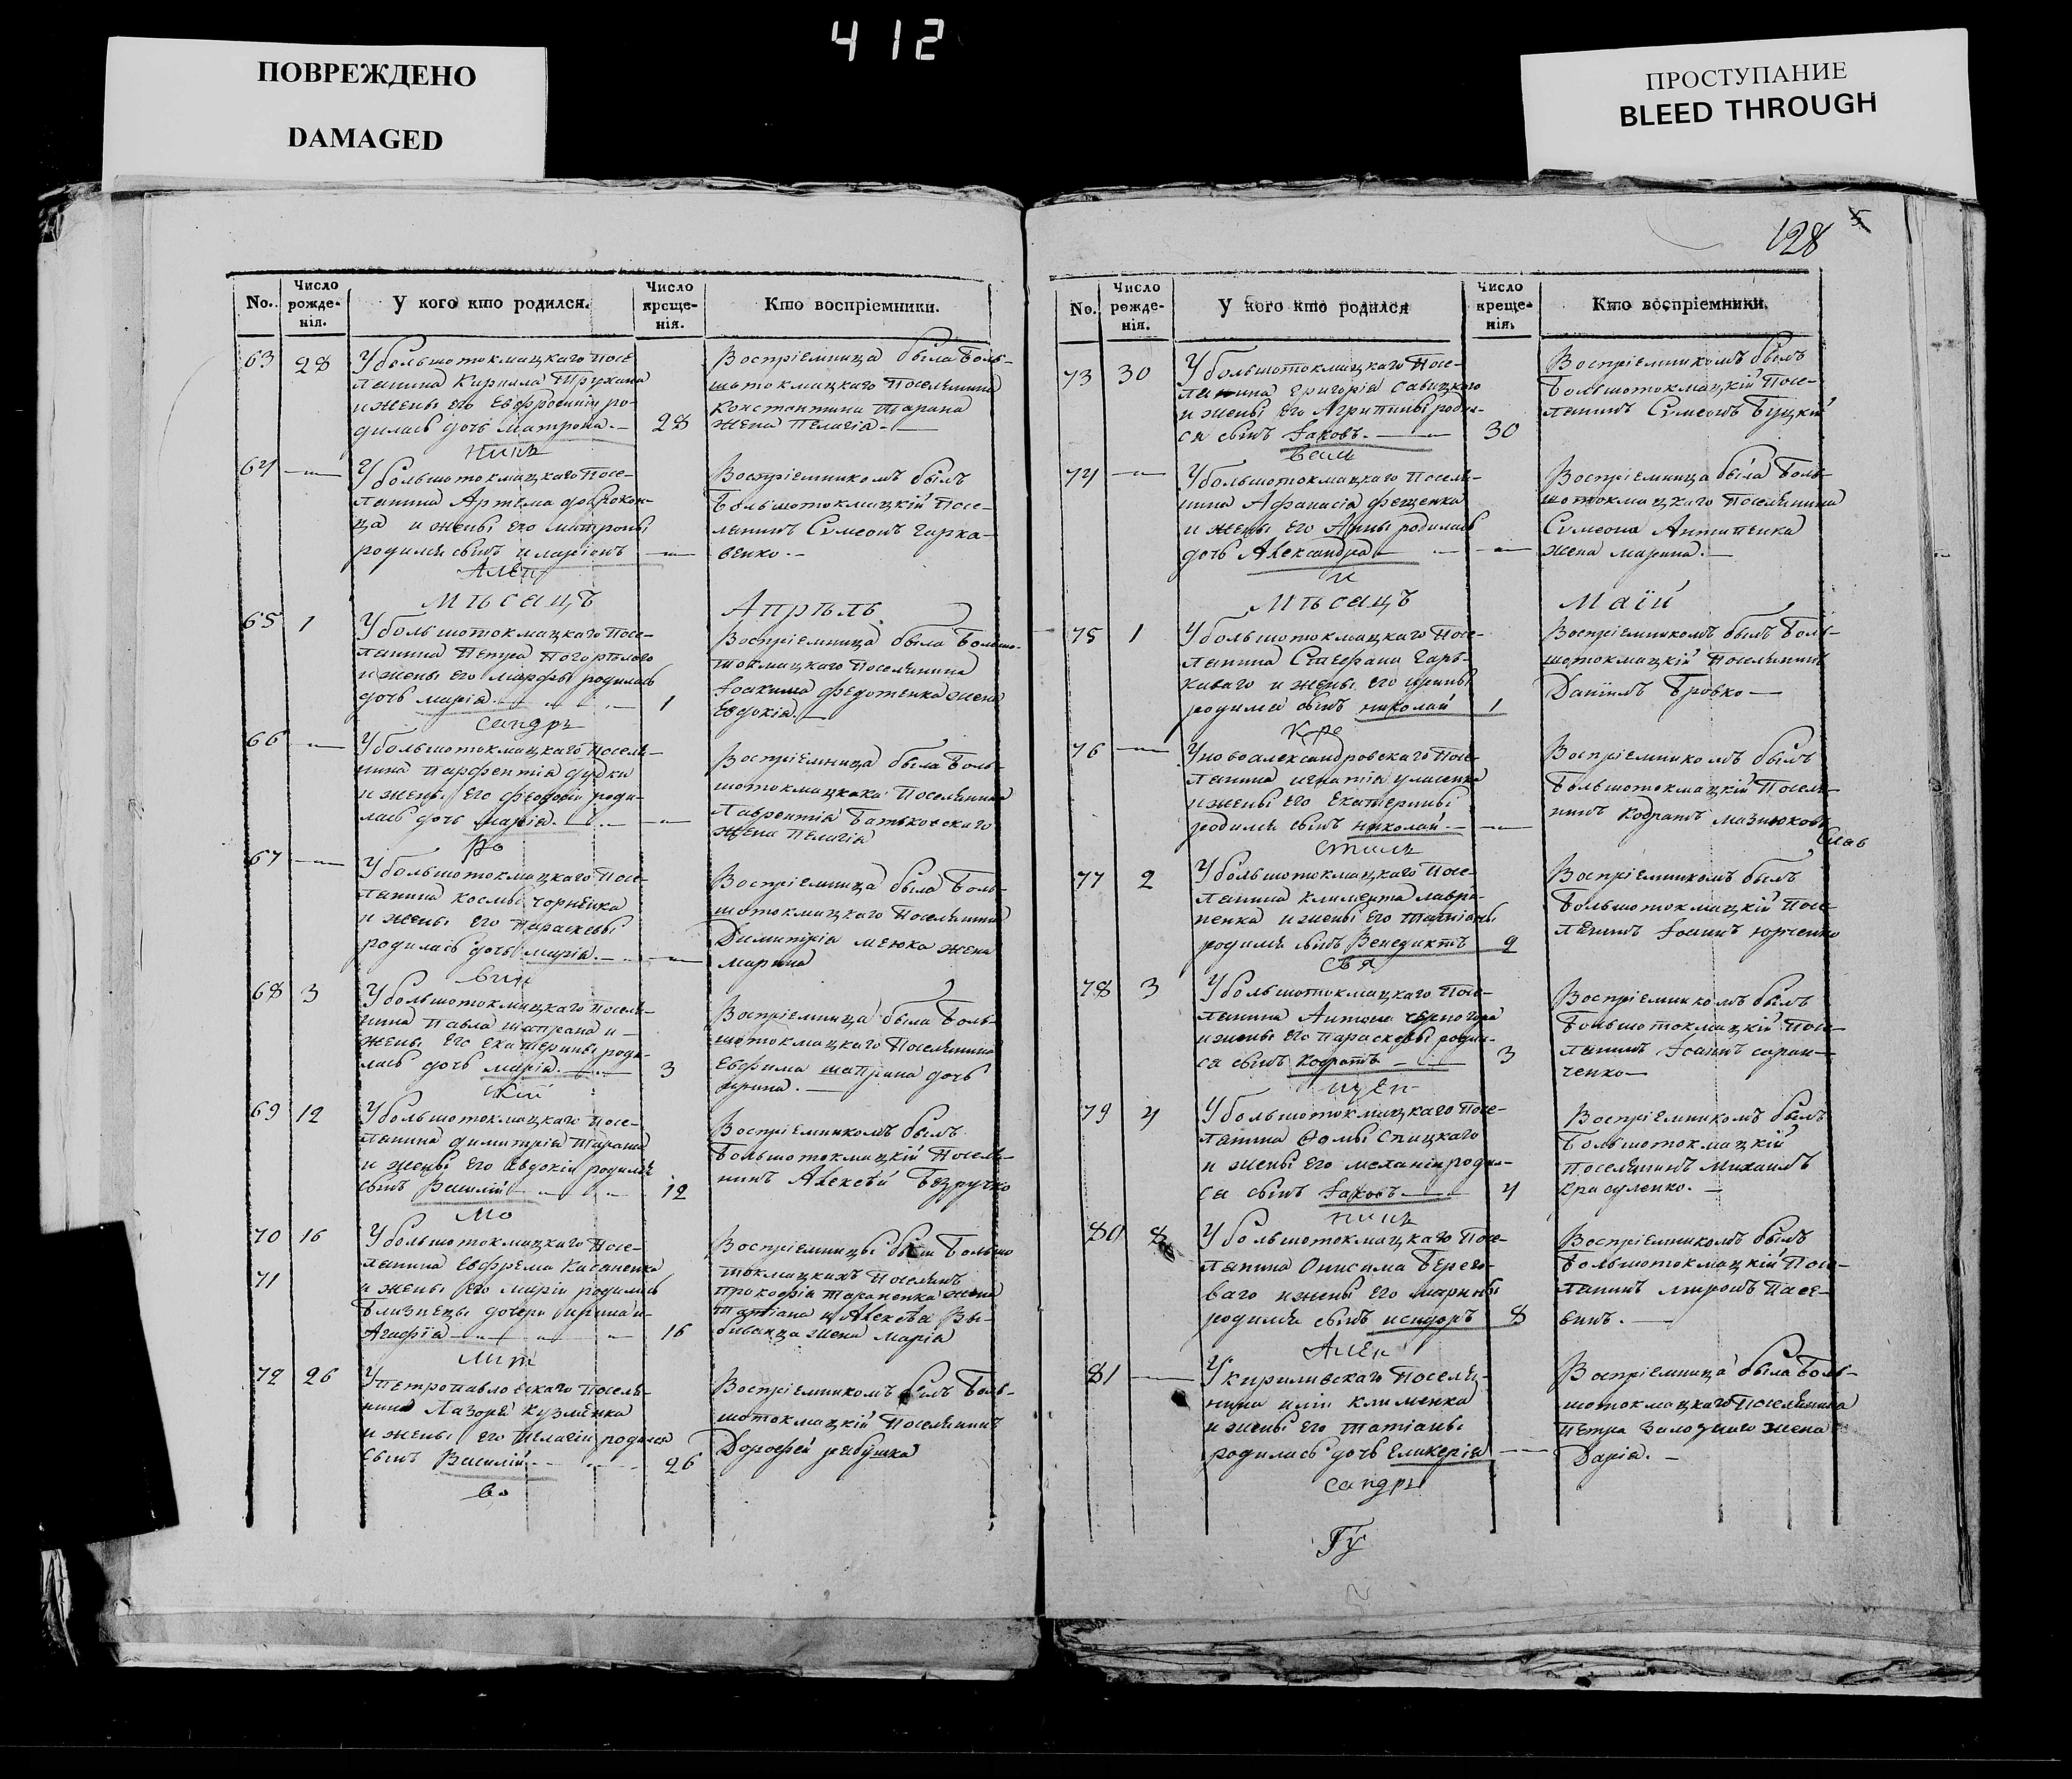 412
ПОВРЕЖДЕНО
DAMAGED
ПРОСТУПАНИЕ
BLEED THROUGH
128
No. Число рожде-нія. У кого кто родился. Число креще-нія. Кто воспріемники.
63 28 У большотокмацкаго посе-
лянина Кирилла Тружана
и жены его Евфросиніи ро-
дилась дочь Матрона. 28
Воспріемница была Боль-
шотокмацкаго Поселянина
Константина Тарана
жена Пелагія.
64 У большотокмацкаго Посе-
лянина Артема
и жены его Матроны
родился сынъ Иларіонъ
Воспріемникомъ былъ
Большотокмацкій Посе-
лянинъ Сумеонъ Гарка-
венко.
Мѣсацъ Апрѣль
65 1 У большотокмацкаго Посе-
лянина Петра Погорѣлого
и жены его Марфы родилась
дочь Марія. 1
Воспріемница была Большо-
токмацкаго Поселянина
Іоакима Федотенка жена
Евдокія.
сандръ
66 У большотокмацкаго Поселя-
нина Парфентія Дудки
и жены его Феодоріи роди-
лась дочь Марія.
Воспріемница была Боль-
шотокмацкака Поселянина
Лаврентія Батьковскаго
жена Пелагія
Ро
67 У большотокмацкаго Посе-
лянина Космы Чорненка
и жены его Параскевы
родилась дочь Марія.
Воспріемница была Боль-
шотокмацкаго Поселянина
Димитрія Менюка жена
Марина
68 3 У большотокмацкаго Поселя-
нина Павла Шапрана и
жены его Екатерины роди-
лась дочь Марія. 3
Воспріемница была Боль-
шотокмацкаго Поселянина
Евфима Шапрана дочь
Ирина.
кій
69 12 У большотокмацкаго Посе-
лянина Димитрія Тарана
и жены его Евдокіи родился
сынъ Василій 12
Воспріемникомъ былъ
Большотокмацкій Поселя-
нинъ Алексѣй Безручко
Мо
70 16 У большотокмацкаго Посе-
лянина Евфрема Касаненка
71 и жены его Маріи родились
Близнецы дочери Ирина и
Агафія 16
Воспріемницы были Большо
токмацкихъ Поселянъ
Прокофія Тараненка жена
Татіана и Алексѣя Вы-
биванца жена Марія
72 26 У петропавловскаго Поселя-
нина Лазоря Кузменка
и жены его Пелагіи родился
сынъ Василій. 26
Воспріемникомъ былъ Боль-
шотокмацкій Поселянинъ
Дорофей рябушка
во
No. Число рожде-нія. У кого кто родился Число креще-нія. Кто воспріемники.
73 30 У большотокмацкаго Посе-
лянина Григорія Савицкого
и жены его Агрипины родил-
ся сынъ Іаковъ. 30
Воспріемникомъ былъ
Большотокмацкій Посе-
лянинъ Сумеонъ Буцкій
74 У большотокмацкаго Поселя-
нина Афанасія Фещенка
и жены его Анны родилась
дочь Александра
Воспріемница была Боль-
шотокмацкаго Поселянина
Сумеона Антипенка
жена Марина.
Мѣсацъ Маій
75 1 У большотокмацкаго Посе-
лянина Стефана Гарь-
каваго и жены его Ирины
родился сынъ Николай 1
Воспріемникомъ былъ Боль-
шотокмацкій Поселянинъ
Даніилъ Бровко
76 У новоалександровскаго Посе-
лянина Игнатія Уласенка
и жены его Екатерины
родился сынъ Николай.
Воспріемникомъ былъ
Большотокмацкій Поселя-
нинъ Кодратъ Мазнюковъ
Слав
77 2 У большотокмацкаго Посе-
лянина Климента Лаври-
ненка и жены его Татіаны
родился сынъ Венедиктъ 2
Воспріемникомъ былъ
Большотокмацкій Посе-
лянинъ Іоаннъ Юрченко
Свя
78 3 У большотокмацкаго Посе-
лянина Антона Черногора
и жены его Параскевы родил-
ся сынъ Кодратъ 3
Воспріемникомъ былъ
Большотокмацкій Посе-
лянинъ Іоаннъ Саран-
ченко
щен
79 4 У большотокмацкаго Посе-
лянина Фомы Спицкаго
и жены его Меланіи родил-
ся сынъ Іаковъ 4
Воспріемникомъ былъ
Большотокмацкій
Поселянинъ Михаилъ
Красуленко.
80 8 У большотокмацкаго Посе-
лянина Онисима Берего-
ваго и жены его Марины
родился сынъ Исидоръ 8
Воспріемникомъ былъ
Большотокмацкій Посе-
лянинъ Миронъ Пасе-
винъ.
Алек
81 У кириливскаго Поселя-
нина Иліи Клименка
и жены его Татіаны
родилась дочь Гликерія
Воспріемница была Боль-
шотокмацкаго Поселянина
Петра жена
Дарія.
сандръ
Гу